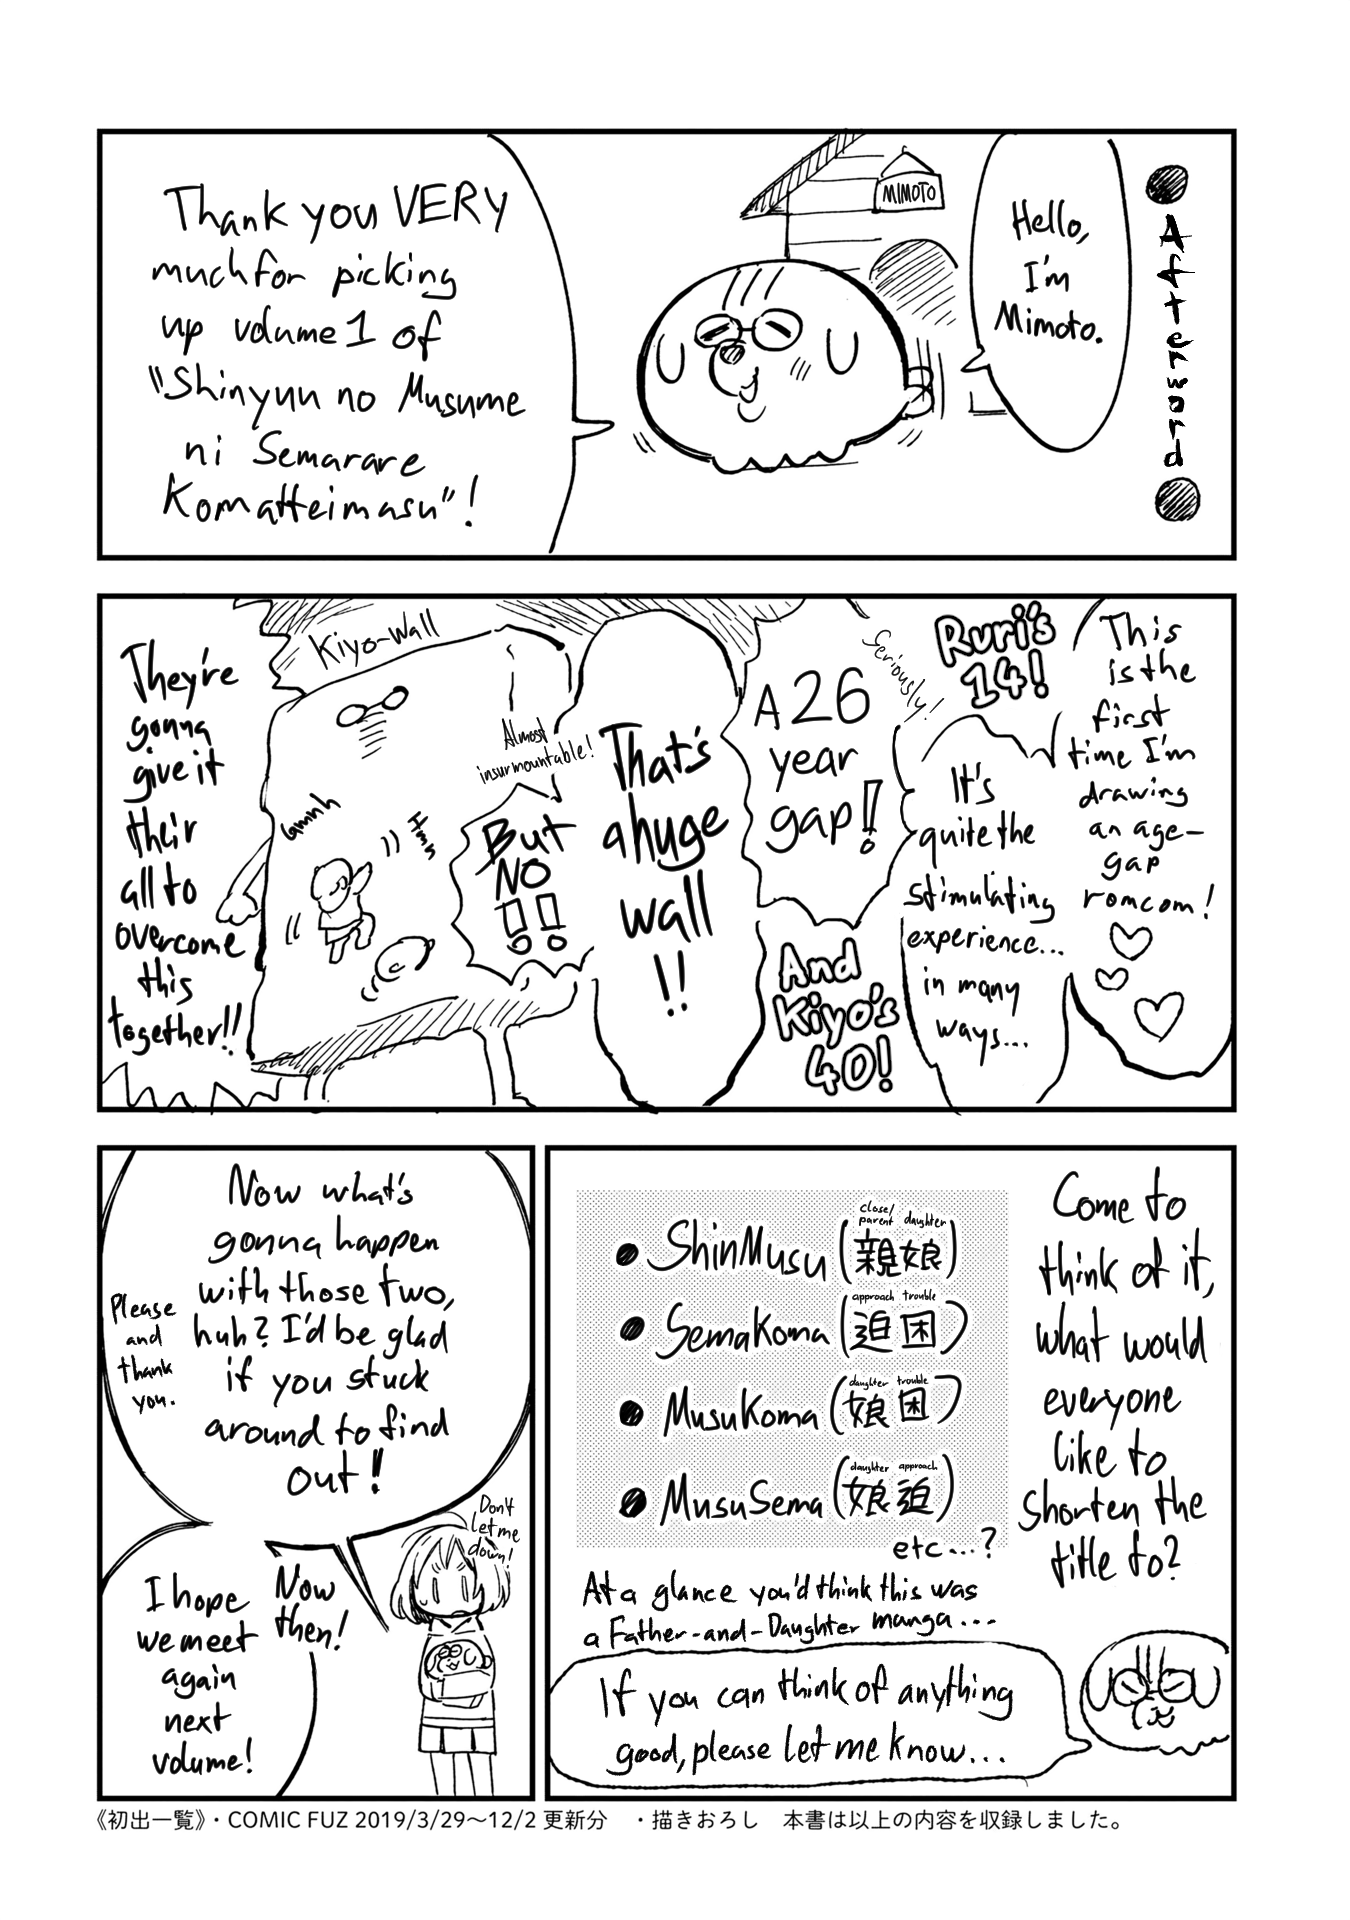 Afterword
Hello,
I'm
Mimoto.
MIMOTO
Thank you VERY
much for picking
up volume 1 of
"Shinyuu no Musume
ni Semarare
Komatteimasu"!
This
is the
first
time I'm
drawing
an age-
gap
romcom!
It's
quite the
stimulating
experience...
in many
ways...
Ruri's
14!
Seriously!
And
Kiyo's
40!
A 26
year
gap!!
That's
a huge
wall
!!
Almost
insurmountable!
But
NO
!!
Kiyo-Wall
They're
gonna
give it
their
all to
overcome
this
together!!
Come to
think of it,
what would
everyone
like to
shorten the
title to?
close/
parent daughter
ShinMusu (親娘)
approach trouble
SemaKoma (迫困)
daughter trouble
MusuKoma (娘困)
daughter approach
MusuSema (娘迫)
etc...?
At a glance you'd think this was
a Father-and-Daughter manga...
If you can think of anything
good, please let me know...
Now what's
gonna happen
with those two,
huh? I'd be glad
if you stuck
around to find
out!!
Please
and
thank
you.
Don't
let me
down!
Now
then!
I hope
we meet
again
next
volume!
《初出一覧》・COMIC FUZ 2019/3/29～12/2 更新分　・描きおろし　本書は以上の内容を収録しました。